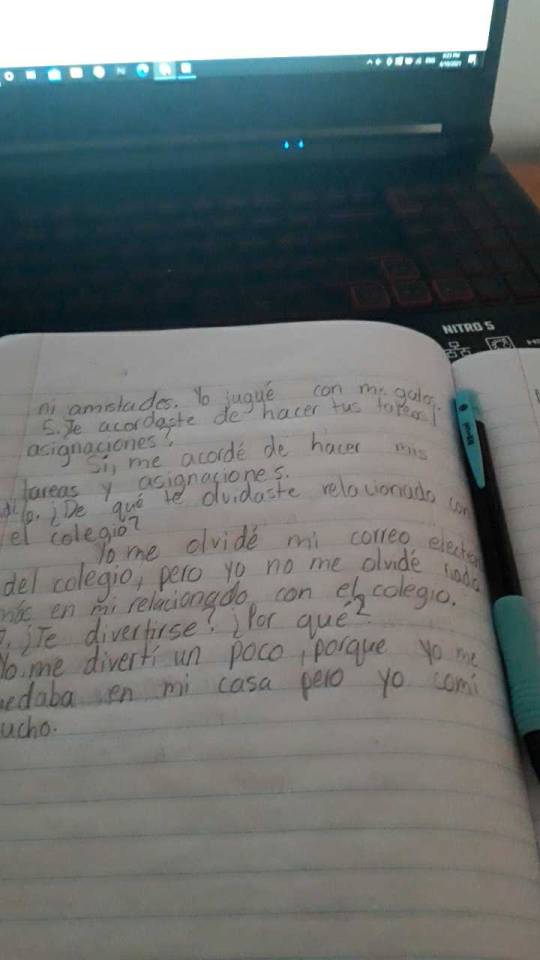 8:23 PM
4/19/2021
ENG
NITRO 5
ni amistades. Yo jugué con mi gato.
5. Te acordaste de hacer tus tareas y
asignaciones?
Sí, me acordé de hacer mis
tareas y asignaciones.
6. ¿De qué te olvidaste relacionado con
el colegio?
Yo me olvidé mi correo electró
del colegio, pero yo no me olvidé nada
más en mi relacionado con el colegio.
7. ¿Te divertirse? ¿Por qué?
Yo me divertí un poco, porque yo me
uedaba en mi casa pero yo comí
ucho.